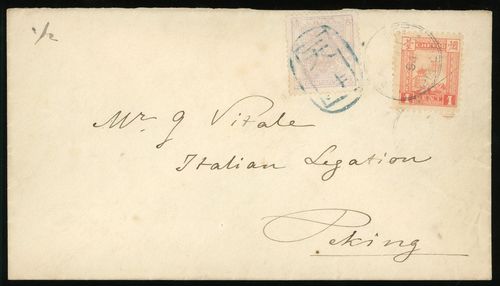 1/2
Mr. G Vitale
Italian Legation
Peking
CENT 1